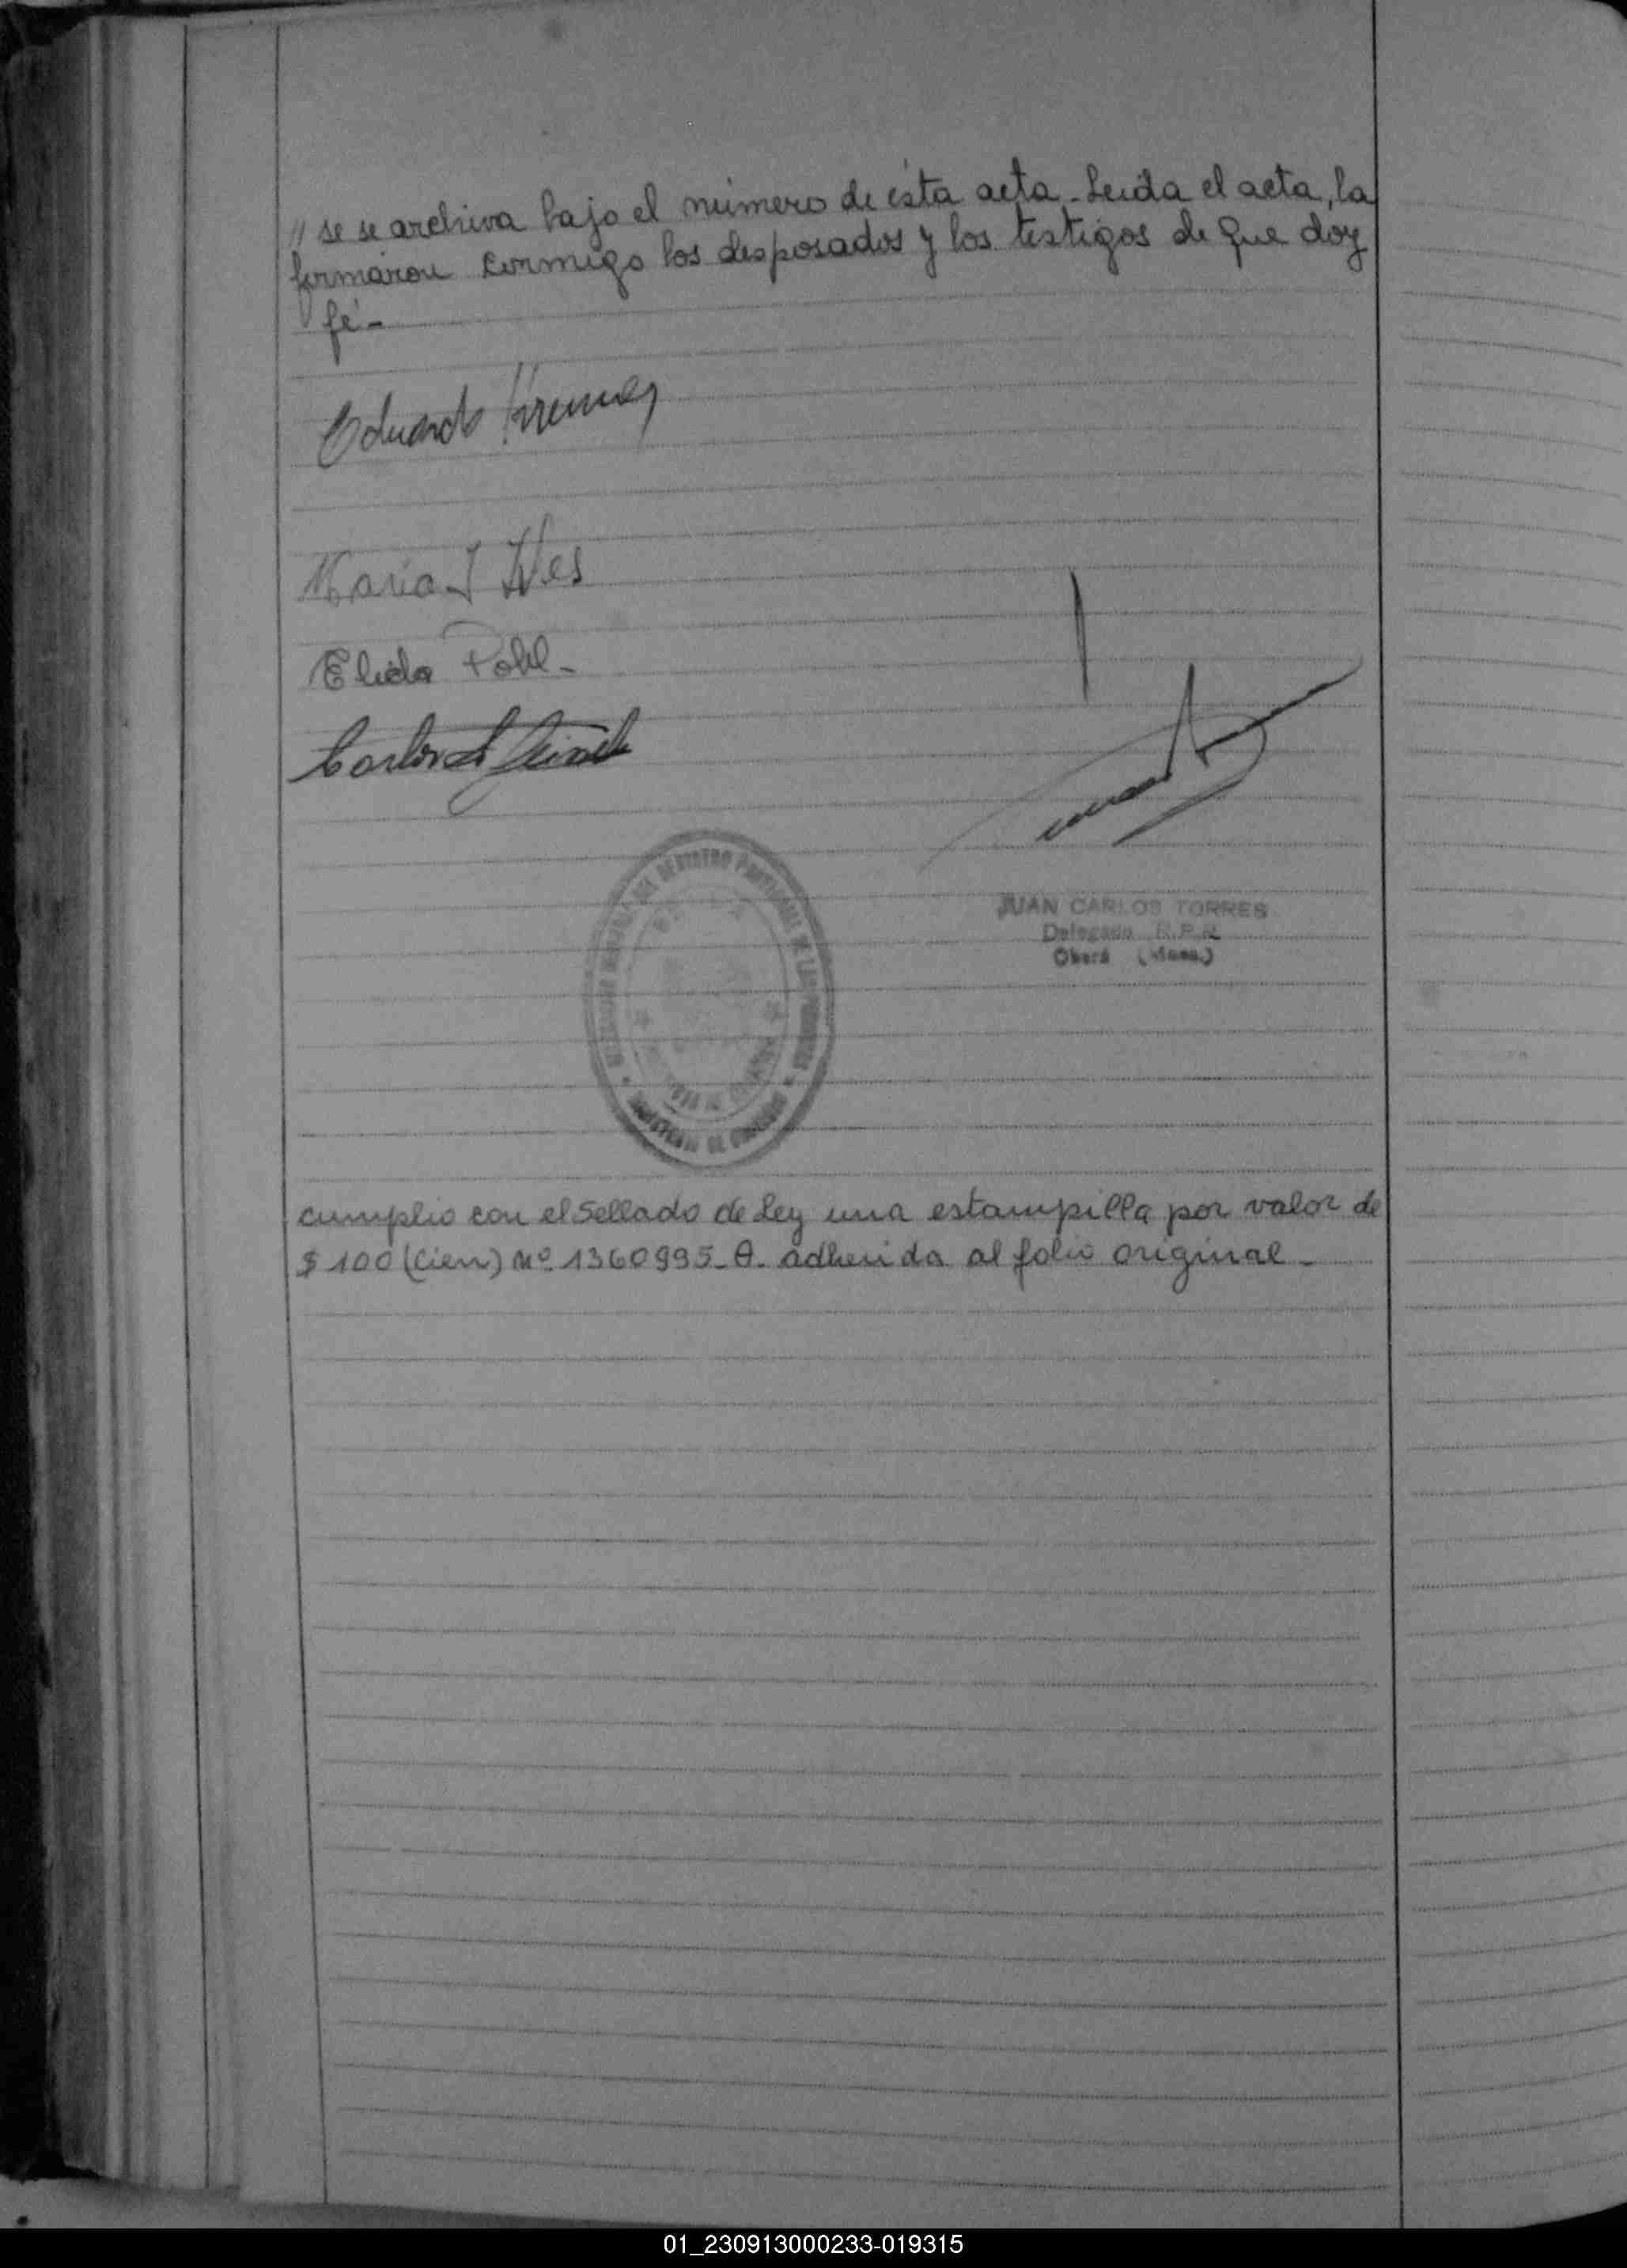 // se se archiva bajo el número de ésta acta. Leida el acta, la
firmáron conmigo los desposados y los testigos de que doy
fé-
Eduardo
Maria I
Elida Pohl-
Carlos
JUAN CARLOS TORRES
Delegado R.P.R.
Oberá (Mnes.)
cumplio con el Sellado de Ley una estampilla por valor de
$ 100 (Cien) Nº 1360995-A. adherida al folio original-
01_230913000233-019315